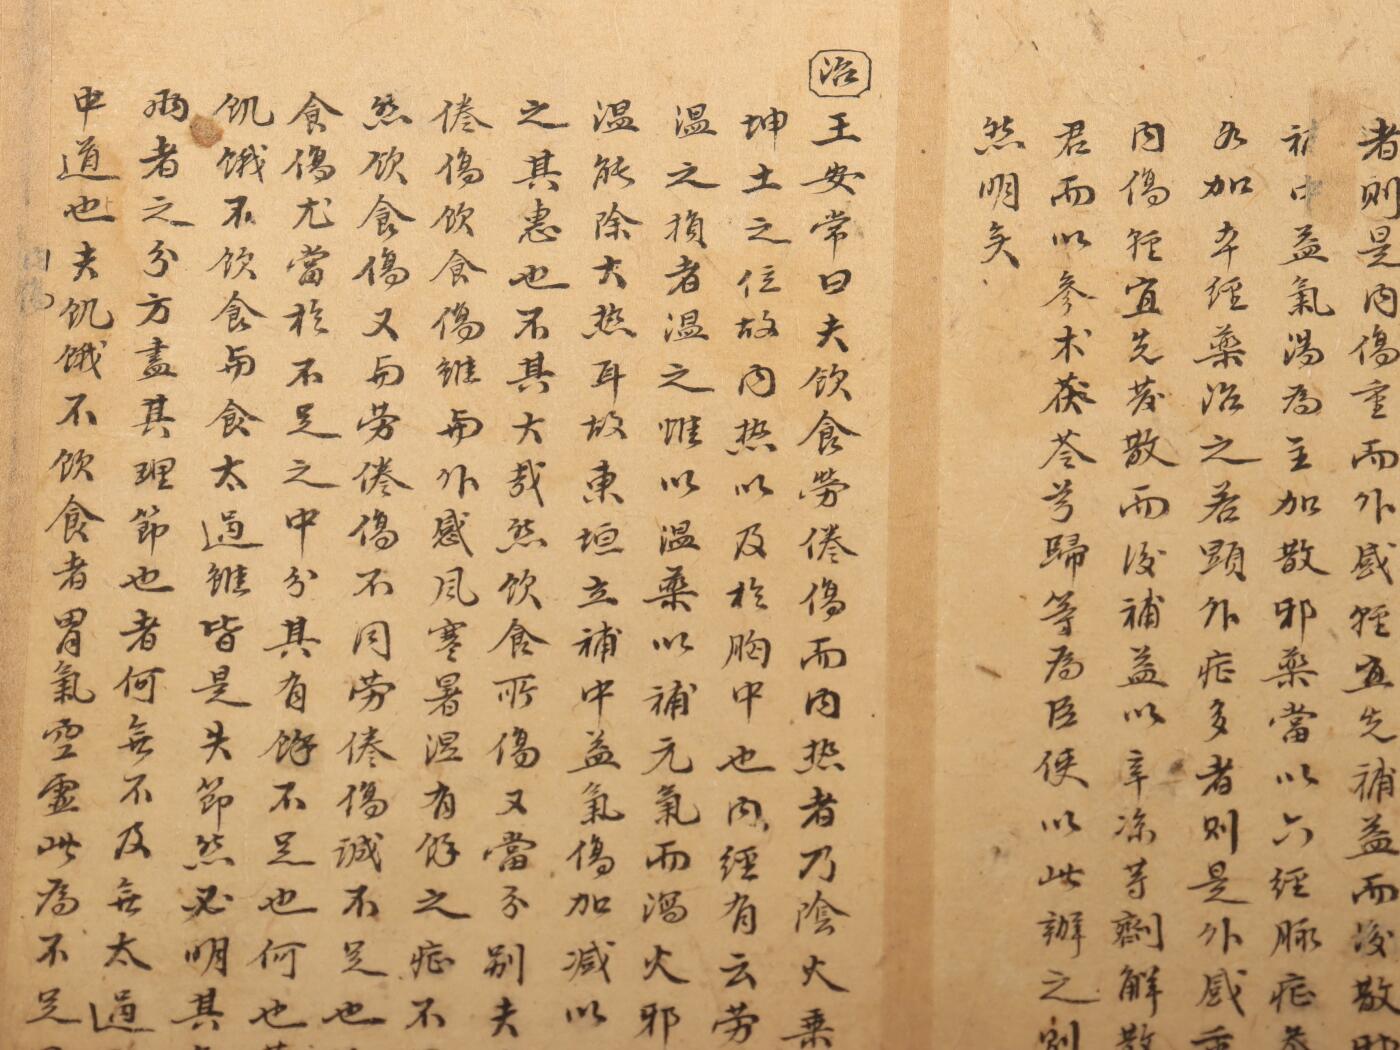 者則是内傷重而外感輕宜先補益而後散
補中益氣湯為主加散邪藥當以六經脉症
加本經藥治之若顕外症多者則是外感
内傷輕宜先發散而後補益以辛凉等劑解散
君而以參术茯苓芎歸等為臣使以此辦之則
然明矣
治
王安常曰夫飲食勞倦傷而内热者乃陰火乗
坤土之位故内热以及於胸中也内經有云劳
温之損者温之惟以温藥以補元氣而瀉火邪
温能除大热耳故東垣立補中益氣傷加减以
之其患也不其大哉然飲食所傷又當分别夫
倦傷飲食傷雖与外感风寒暑湿有餘之症不
然飲食傷又与劳倦傷不同劳倦傷誠不足也
食傷尤當於不足之中分其有餘不足也何也
飢餓不飲食与食太過雖皆是失節然必明其
兩者之分方盡其理節也者何無不及無太過
中道也夫飢餓不飲食者胃氣空虚此為不足
内傷